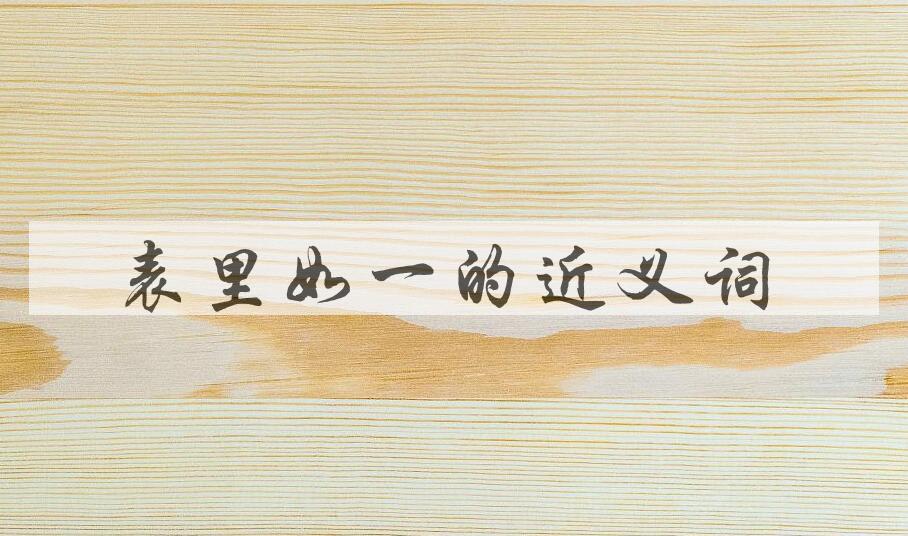 表里如一的近义词